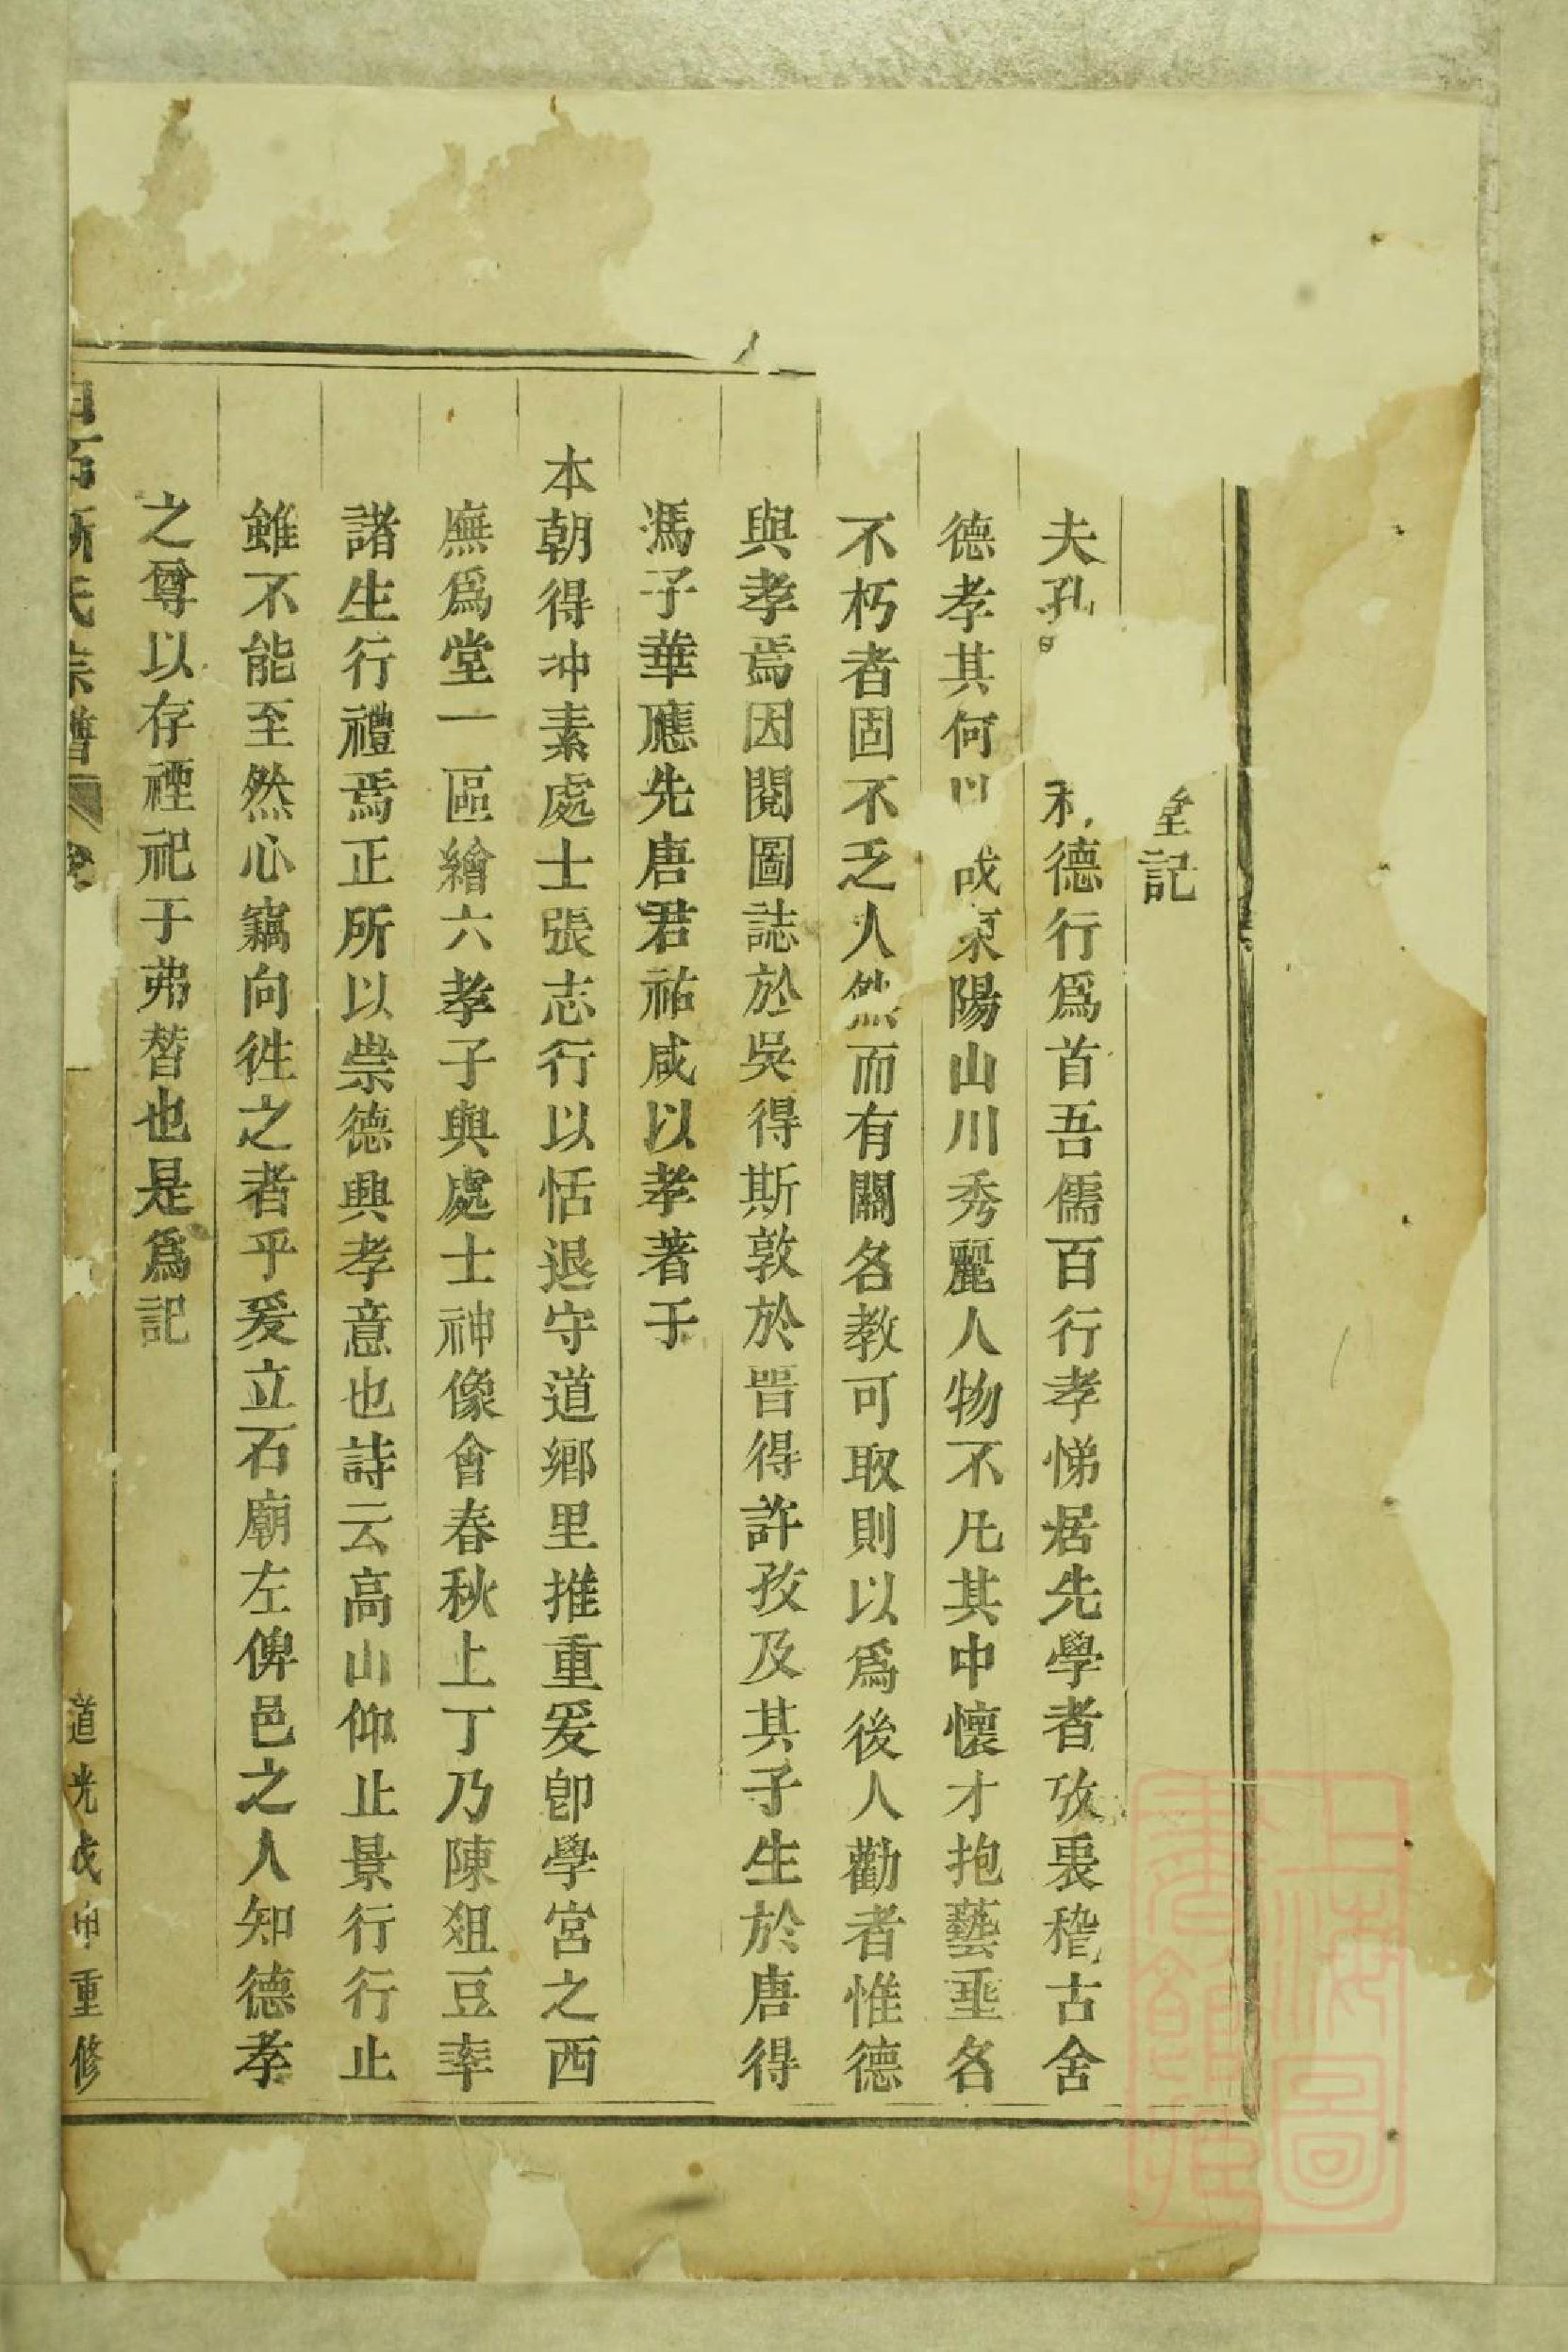 堂記
夫孔 德行爲首吾儒百行孝悌居先學者攷衷稽古舍
德孝其何以成東陽山川秀麗人物不凡其中懷才抱藝垂名
不朽者固不乏人然而有關名教可取則以爲後人勸者惟德
與孝焉因閱圖誌於吳得斯敦於晋得許孜及其子生於唐得
馮子華應先唐君祐咸以孝著于
本朝得冲素處士張志行以恬退守道鄉里推重爰卽學宮之西
廡爲堂一區繪六孝子與處士神像會春秋上丁乃陳俎豆率
諸生行禮焉正所以崇德興孝意也詩云高山仰止景行行止
雖不能至然心竊向徃之者乎爰立石廟左俾邑之人知德孝
之尊以存禋祀于弗替也是爲記
石斯氏宗譜
道光戊申重修
上海圖書館藏